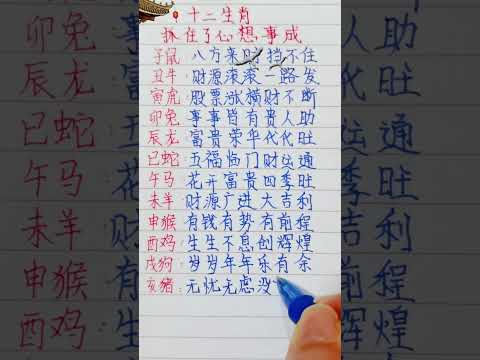 十二生肖
抓住了心想事成
子鼠 八方来财挡不住
丑牛 财源滚滚一路发
寅虎 股票涨横财不断
卯兔 事事皆有贵人助
辰龙 富贵荣华代代旺
巳蛇 五福临门财运通
午马 花开富贵四季旺
未羊 财源广进大吉利
申猴 有钱有势有前程
酉鸡 生生不息创辉煌
戌狗 岁岁年年乐有余
亥猪 无忧无虑没